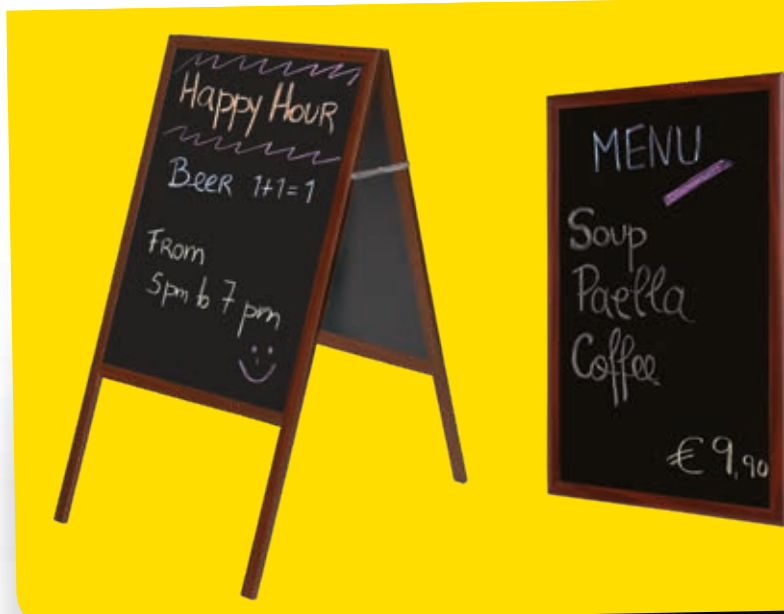 Happy Hour
Beer 1+1=1
From
5pm to 7 pm
MENU
Soup
Paella
Coffee
€ 9,90